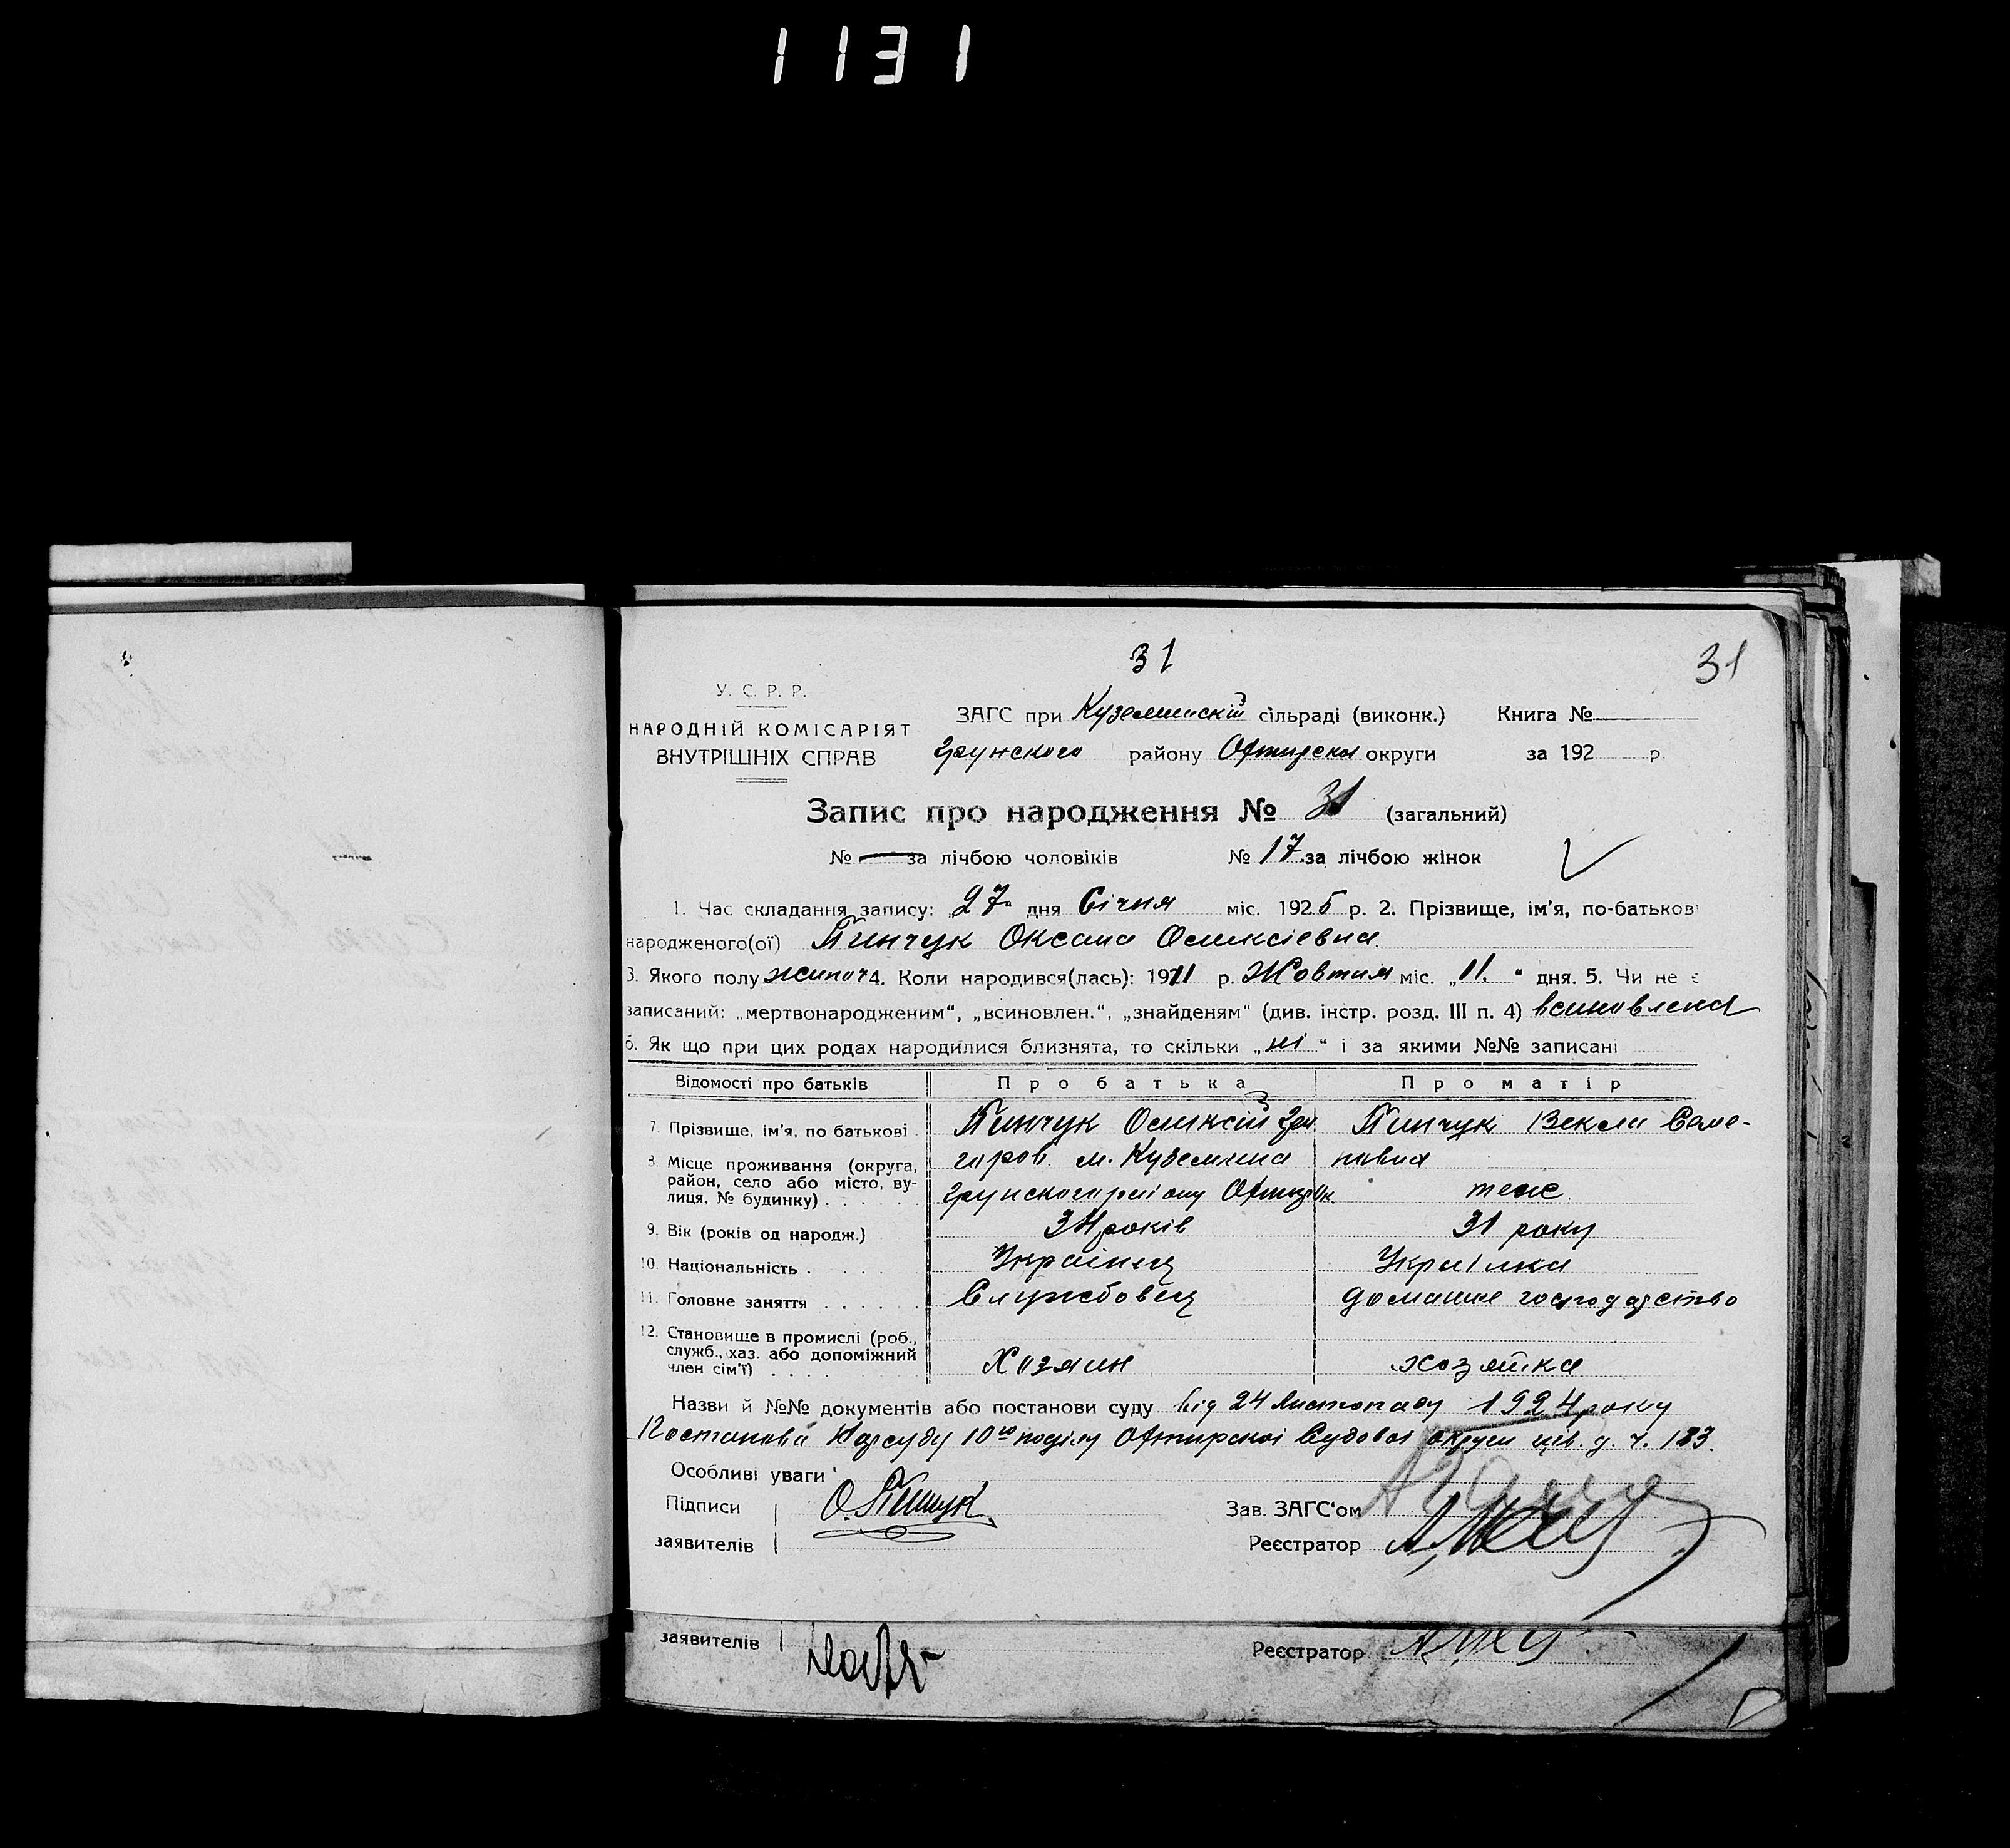 1131
31
31
У. С. Р. Р.
НАРОДНІЙ КОМІСАРІЯТ
ВНУТРІШНІХ СПРАВ
ЗАГС при Куземинскій сільраді (виконк.) Книга №
Грунського району Охтирськ округи за 192 р.
Запис про народження № 31 (загальний)
№ — за лічбою чоловіків № 17 за лічбою жінок
1. Час складання запису: 27 дня Січня міс. 1925 р. 2. Прізвище, ім'я, по-батькові
народженого(ої) Пинчук Оксана Олексіевна
3. Якого полу жиноч 4. Коли народився(лась): 1911 р. Жовтня міс. „11.“ дня. 5. Чи не є
записаний: „мертвонародженим“, „всиновлен.“, „знайденям“ (див. інстр. розд. III п. 4) всиновлена
6. Як що при цих родах народилися близнята, то скільки „ні“ і за якими №№ записані
Відомості про батьків Про батька Про матір
7. Прізвище, ім'я, по батькові Пинчук Олексій Гри Пинчук Векла Семе-
горов. м. Куземина новна
8. Місце проживання (округа,
район, село або місто, ву-
лиця, № будинку) Грунського району Охтир. Ок. теж
9. Вік (років од народж.) 34 років 31 року
10. Національність Українец Українка
11. Головне заняття Службовец домашне господарство
12. Становище в промислі (роб.,
служб., хаз. або допоміжний
член сім'ї) Хозяин хозяйка
Назви й №№ документів або постанови суду від 24 Листопаду 1924 року
Постанова Нарсуду 10го поділу Охтирскоі Судовоі округи цив. д. ч. 183.
Особливі уваги
Підписи О. Пинчук Зав. ЗАГС'ом
заявителів Реєстратор
заявителів Реєстратор